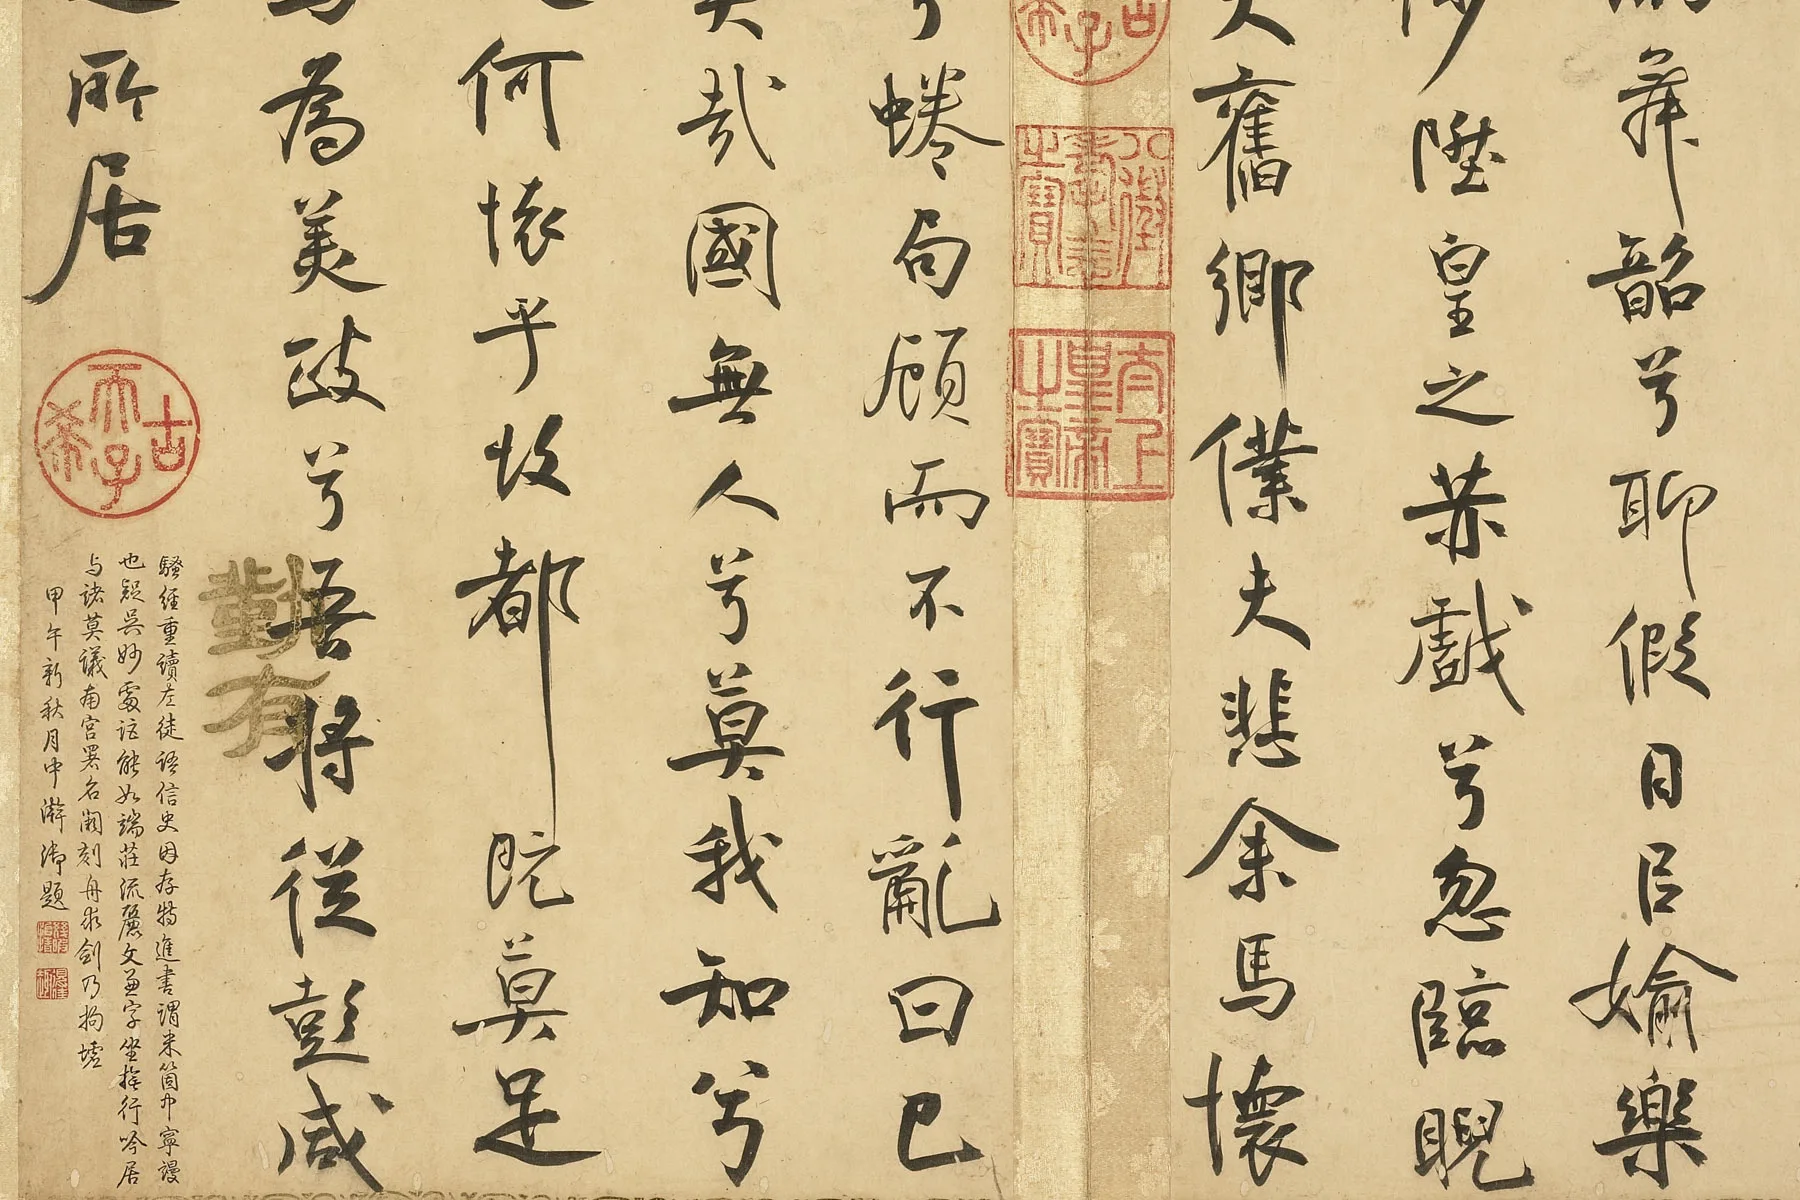 舞韶兮聊假日㠯婾樂
陟陞皇之赫戲兮忽臨睨
夫舊鄉僕夫悲余馬懷
古希天子
八徵耄念之寶
太上皇帝之寶
兮蜷局顧而不行亂曰已
矣哉國無人兮莫我知兮
何懷乎故都既莫足
為美政兮吾將從彭咸
所居
古希天子
騷經重讀左徒語信史因存特進書謂米箇中寧謾
也疑吳妙處詎能如端莊流麗文兼字坐行吟居
与諸莫議南宮署名闕刻舟求劍乃拘墟
甲午新秋月中澣御題